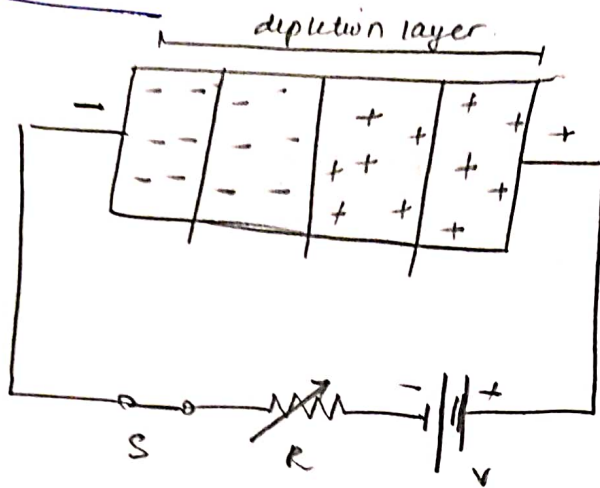 depletion layer
-
- - - - + + + +
- - - - + + + + +
- - - - + + + +
S
R
- +
V